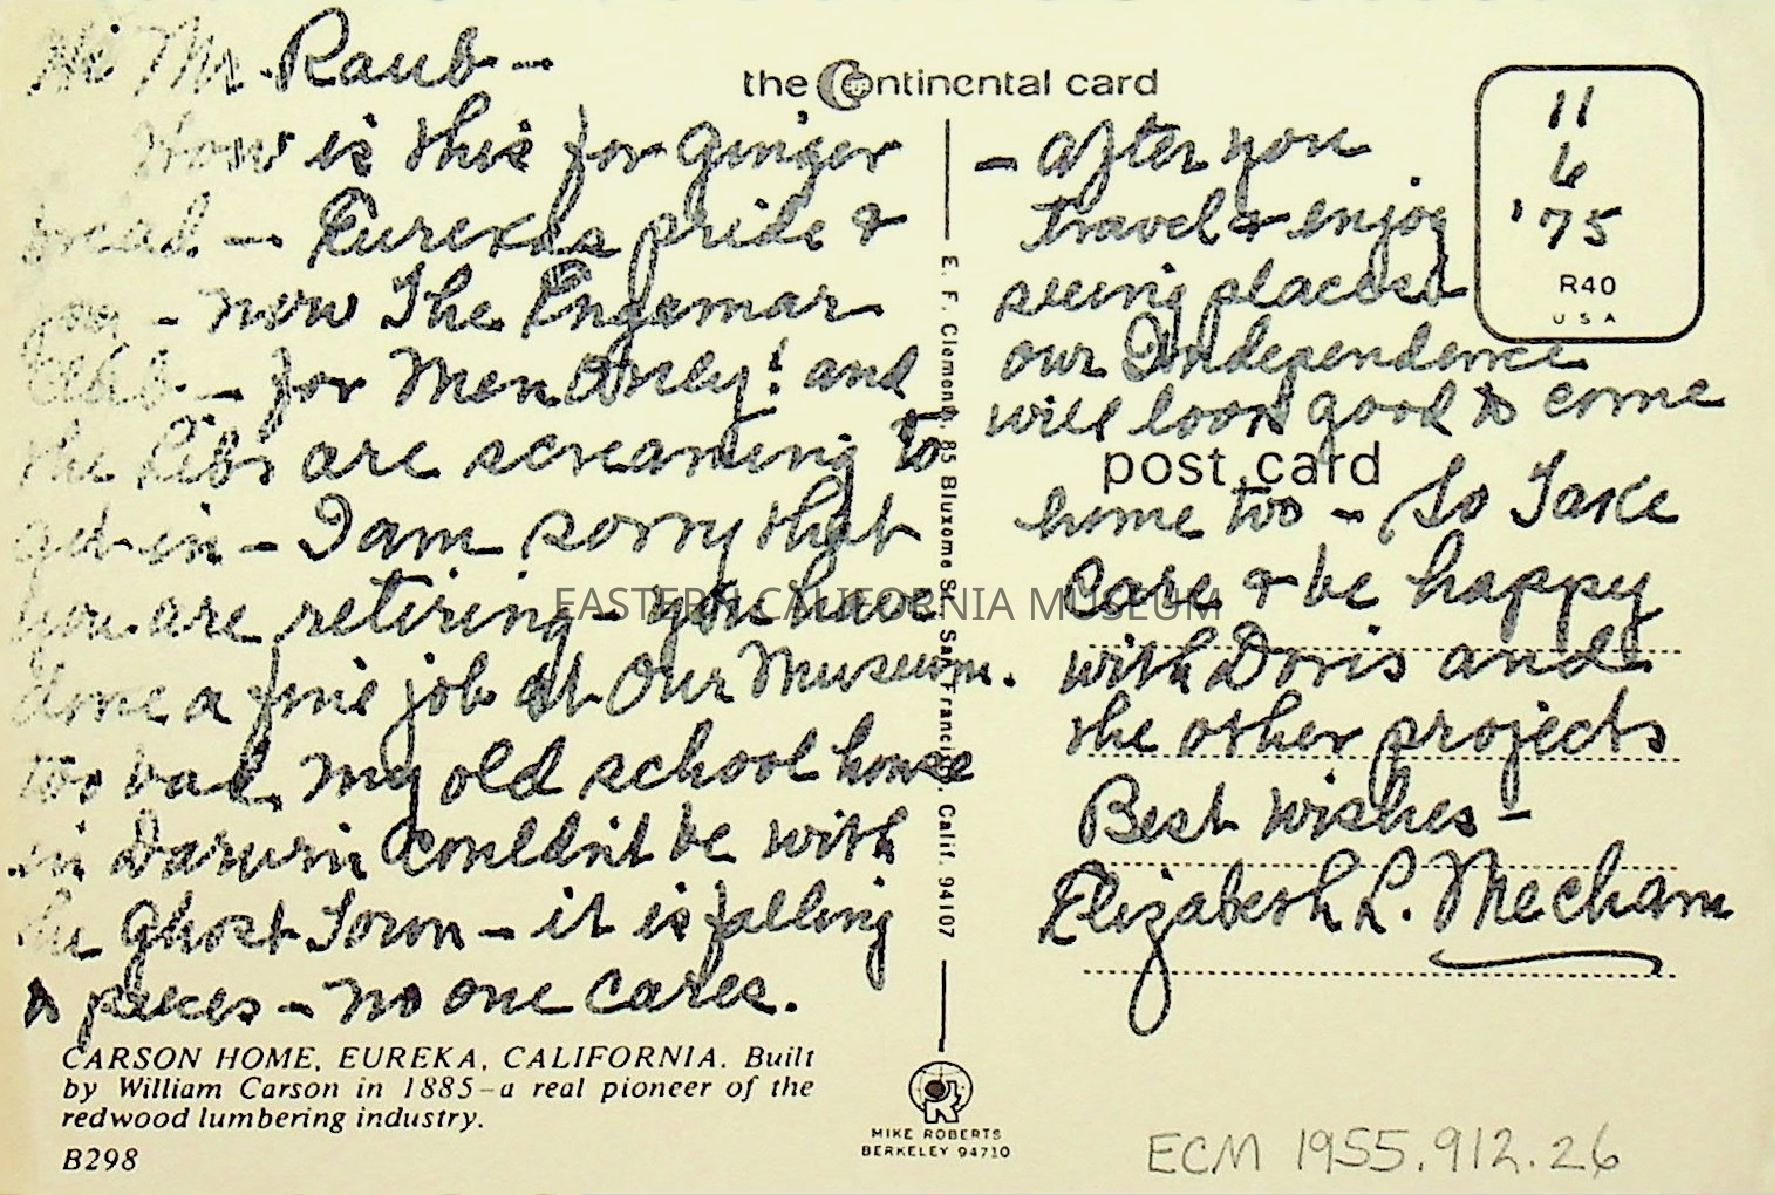 Hi Mr. Raub -
How is this for ginger
bread - Eurekas pride &
joy - now The Ingomar
Club - for Men Only! and
the libs are screaming to
get in - I am sorry that
you are retiring - you have
done a fine job at Our Museum.
too bad, my old school house
in Darwin couldn't be with
the Ghost Town - it is falling
to pieces - no one cares.
CARSON HOME, EUREKA, CALIFORNIA. Built
by William Carson in 1885-a real pioneer of the
redwood lumbering industry.
B298
the Continental card
E. F. Clements, 85 Bluxome St. San Francisco, Calif. 94107
MIKE ROBERTS
BERKELEY 94710
11
6
'75
R40
USA
- after you
travel & enjoy
seeing places
our Independence
will look good to come
post card
home too - So Take
Care & be happy
with Doris and
the other projects
Best Wishes -
Elizabeth L. Mecham
EASTERN CALIFORNIA MUSEUM
ECM 1955.912.26